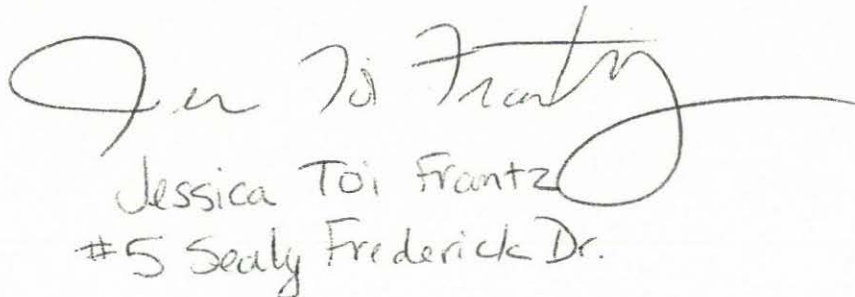 Jess Toi Frantz
Jessica Toi Frantz
#5 Sealy Frederick Dr.